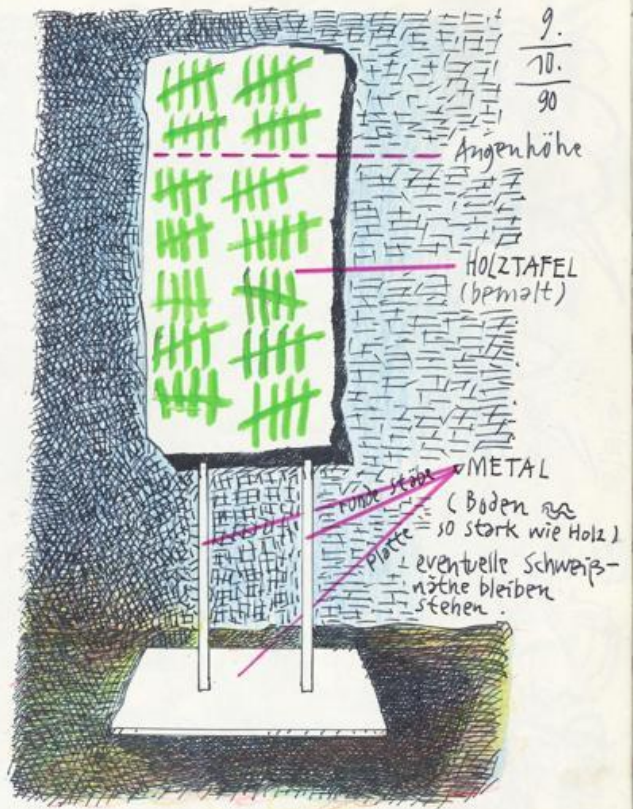 9.
10.
90
Augenhöhe
HOLZTAFEL
(bemalt)
METAL
runde stäbe
(Boden ≈
so stark wie Holz)
platte
eventuelle Schweiß-
näthe bleiben
stehen.